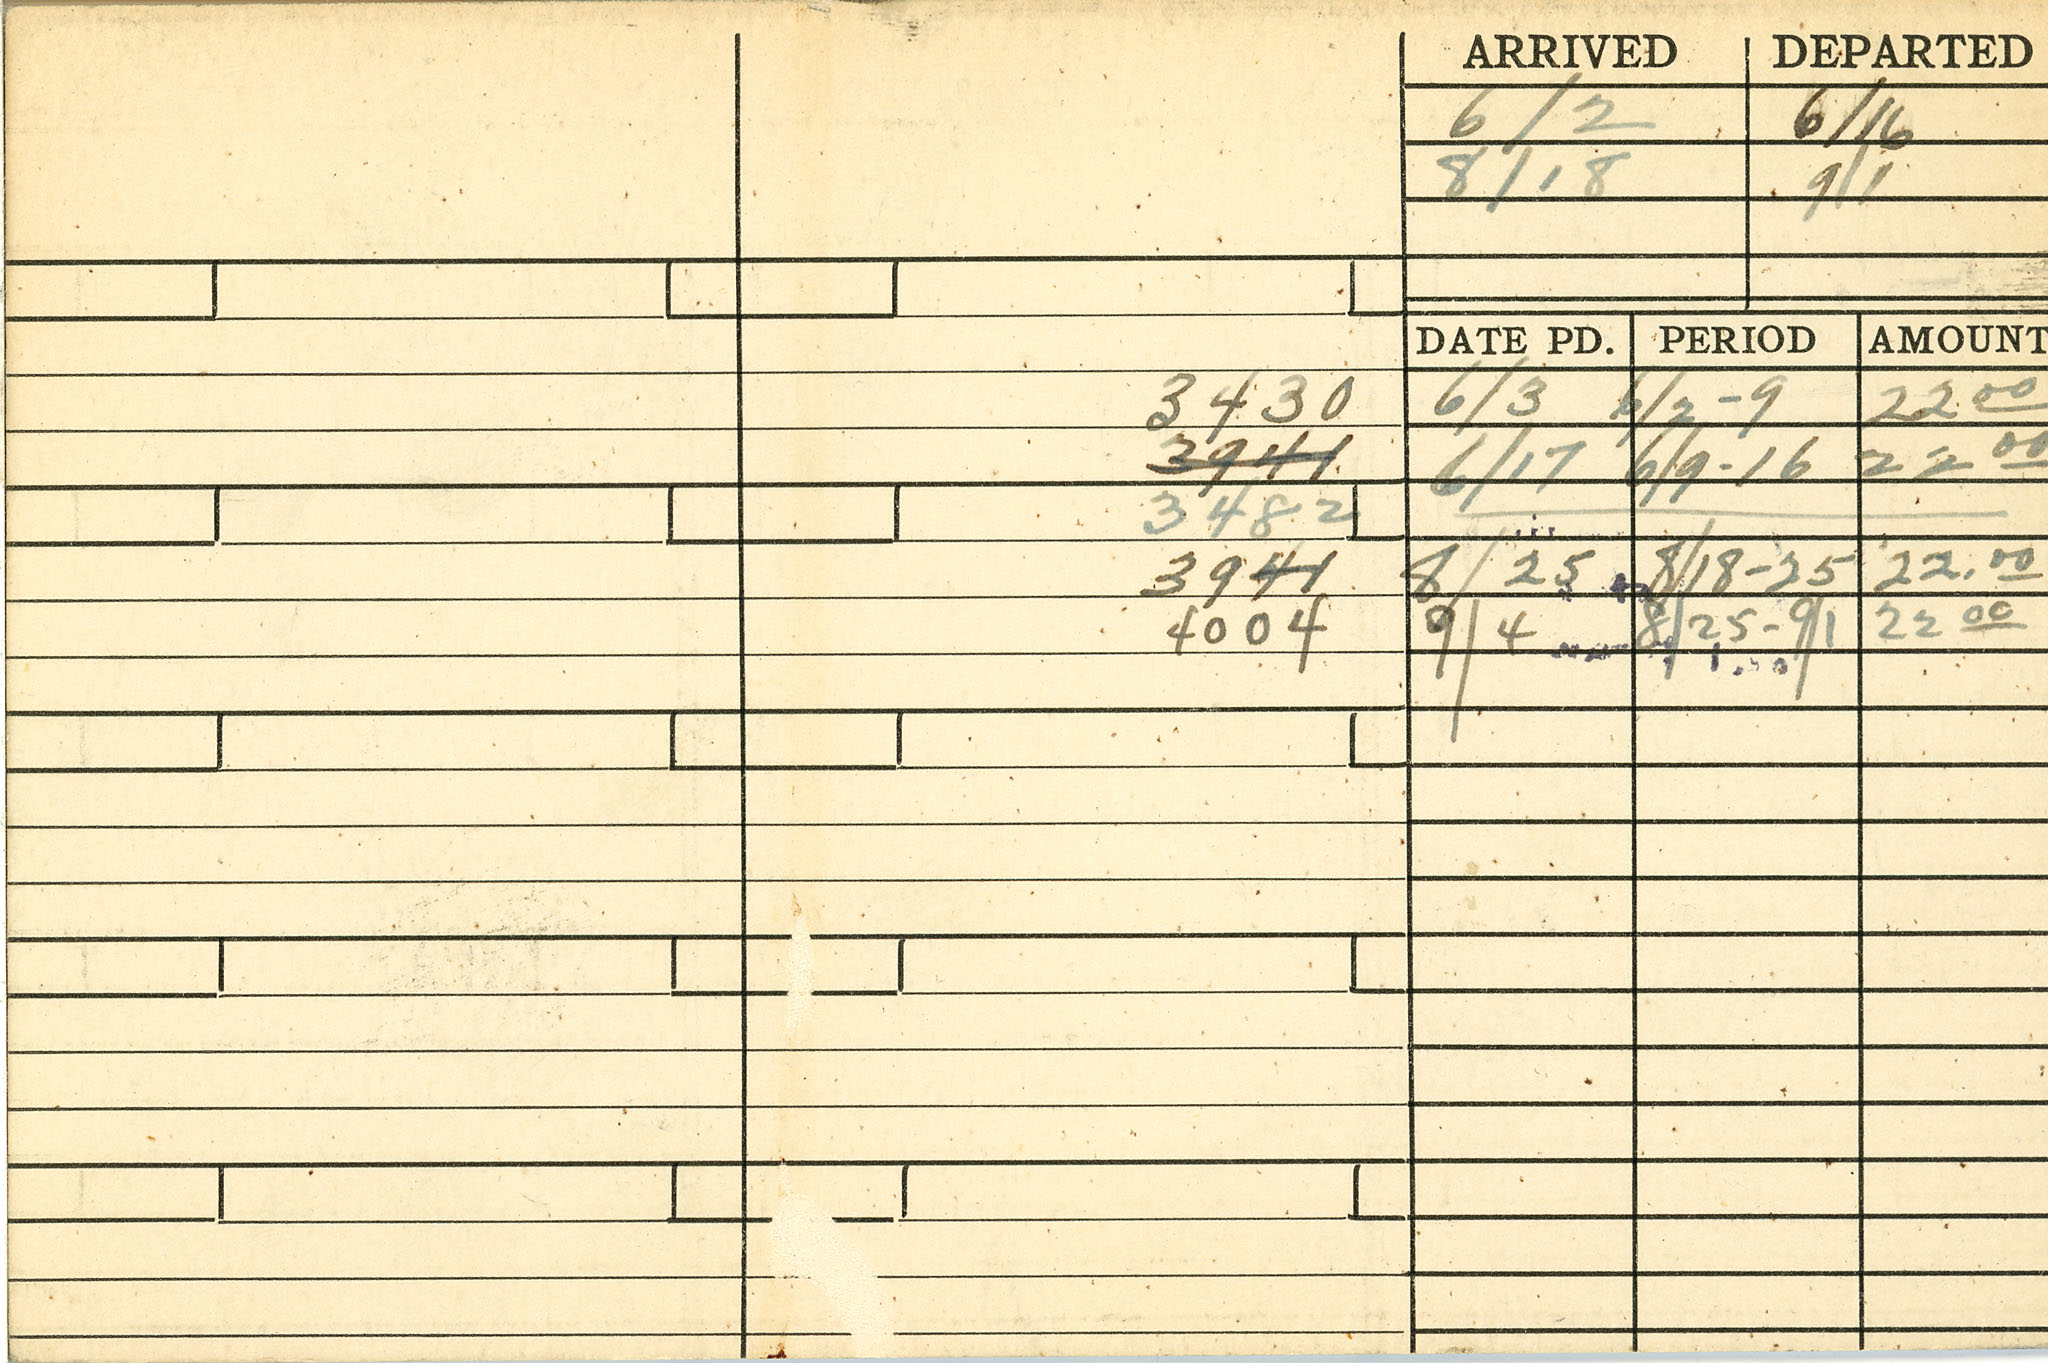 ARRIVED DEPARTED
6/2 6/16
8/18 9/1
DATE PD. PERIOD AMOUNT
3430 6/3 6/2-9 22 00
3941 6/17 6/9-16 22 00
3482
3941 8/25 8/18-25 22.00
4004 9/4 8/25-9/1 22 00